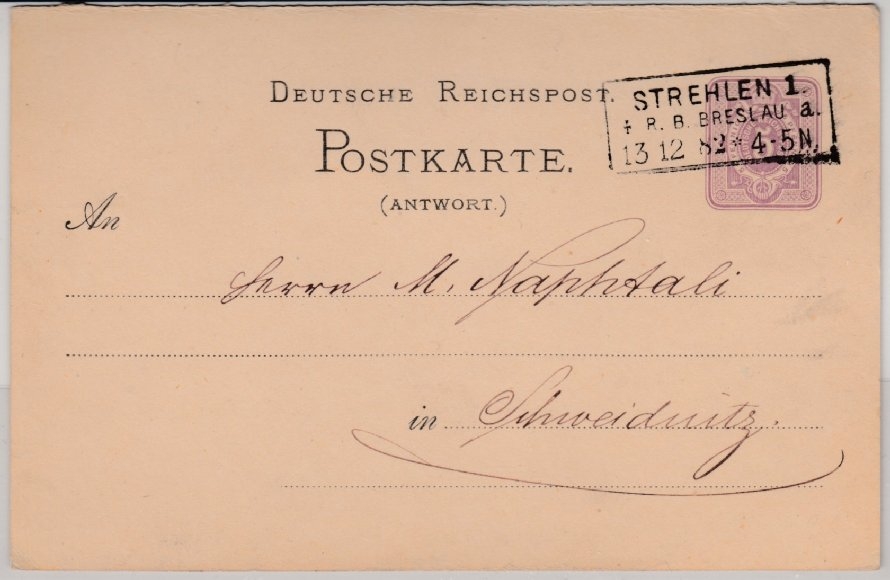 DEUTSCHE REICHSPOST.
STREHLEN 1.
R. B. BRESLAU a.
13 12 82 * 4-5N.
POSTKARTE.
(ANTWORT.)
An
Herrn M. Naphtali
in Schweidnitz.